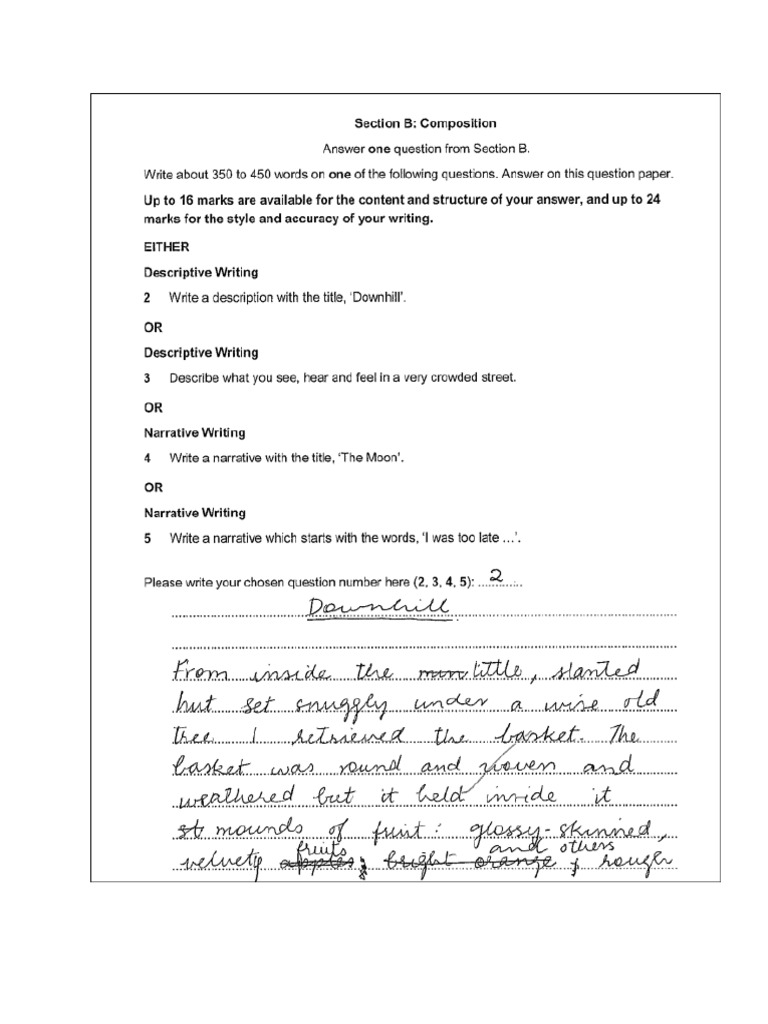 Section B: Composition
Answer one question from Section B.
Write about 350 to 450 words on one of the following questions. Answer on this question paper.
Up to 16 marks are available for the content and structure of your answer, and up to 24
marks for the style and accuracy of your writing.
EITHER
Descriptive Writing
2 Write a description with the title, ‘Downhill’.
OR
Descriptive Writing
3 Describe what you see, hear and feel in a very crowded street.
OR
Narrative Writing
4 Write a narrative with the title, ‘The Moon’.
OR
Narrative Writing
5 Write a narrative which starts with the words, ‘I was too late …’.
Please write your chosen question number here (2, 3, 4, 5): 2
Downhill
From inside the little, slanted
hut set snuggly under a wise old
tree I retrieved the basket. The
basket was round and woven and
weathered but it held inside it
mounds of fruit: glossy-skinned,
fruits and others
velvety apples; bright orange; rough